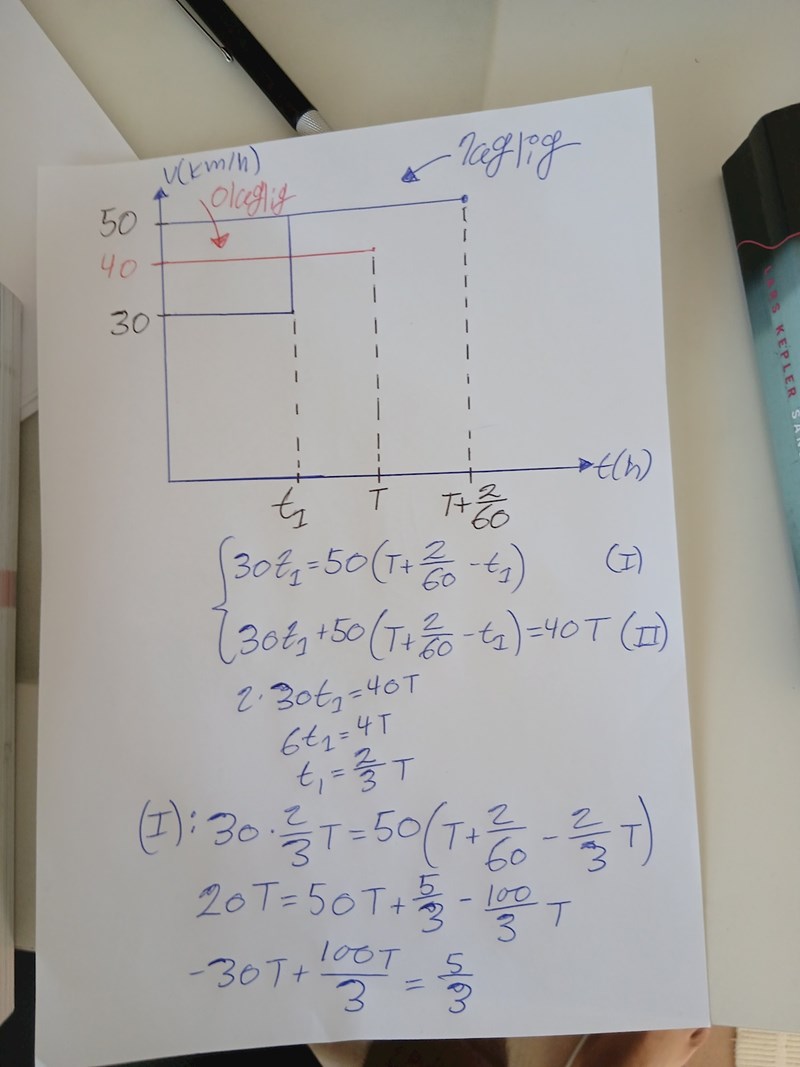 v(km/h)
olaglig
laglig
50
40
30
t(h)
t₁
T
T+2/60
30t₁=50(T+2/60-t₁) (I)
30t₁+50(T+2/60-t₁)=40T (II)
2·30t₁=40T
6t₁=4T
t₁=2/3 T
(I): 30·2/3T=50(T+2/60-2/3T)
20T=50T+5/3-100/3 T
-30T+100T/3=5/3
LARS KEPLER SAN